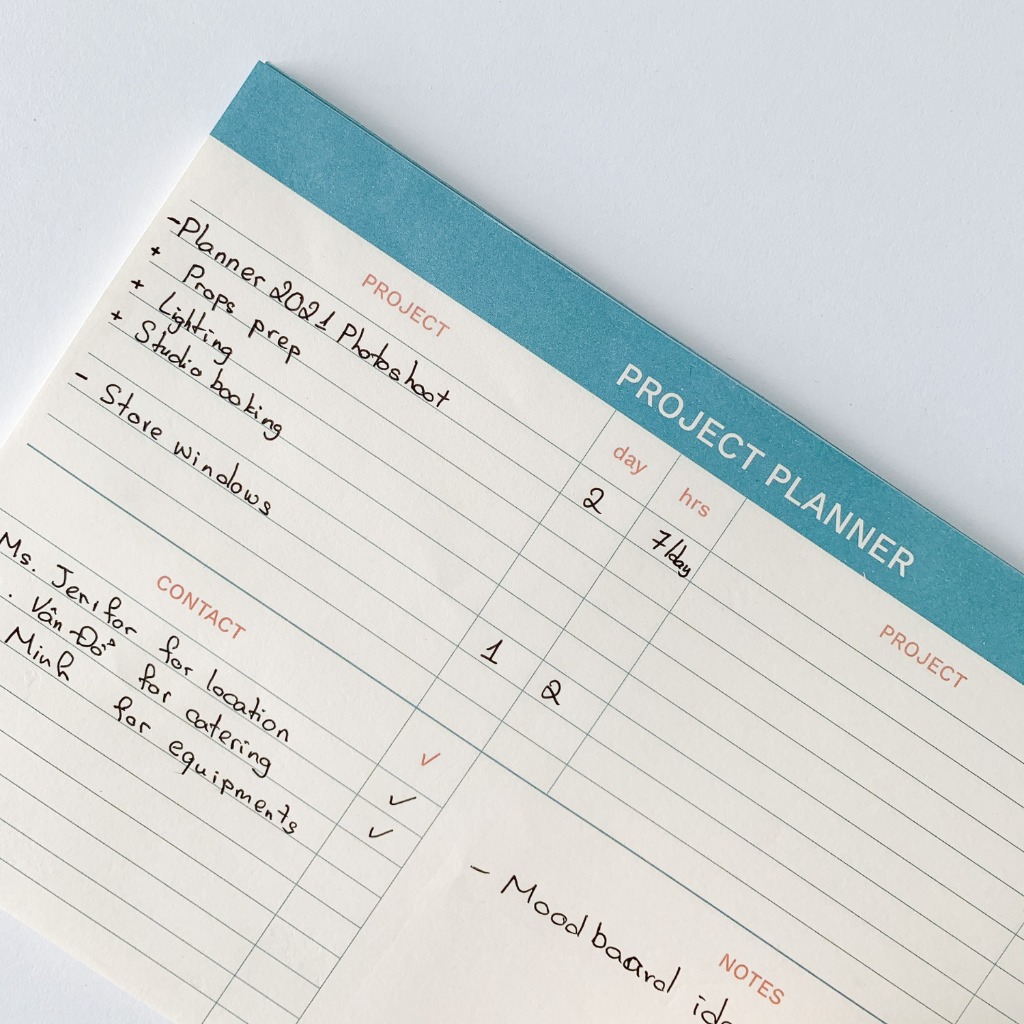 PROJECT PLANNER
PROJECT
day
hrs
PROJECT
-Planner 2021 Photoshoot
2
7/day
+ Props prep
+ Lighting
+ Studio booking
- Store windows
1
2
CONTACT
✓
Ms. Jenifor for location
✓
. Vân Đỗ for catering
✓
Minh for equipments
NOTES
- Mood baard